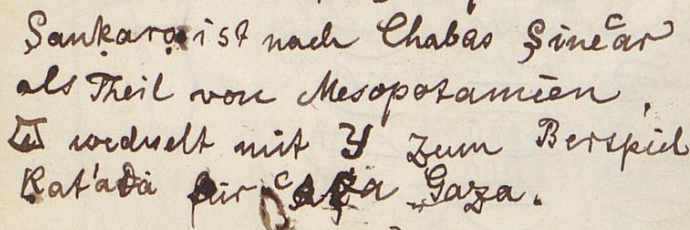 Şankara ist nach Chabas Şineʿar
als Theil von Mesopotamien,
wechselt mit צ zum Beispiel
für Gaza.